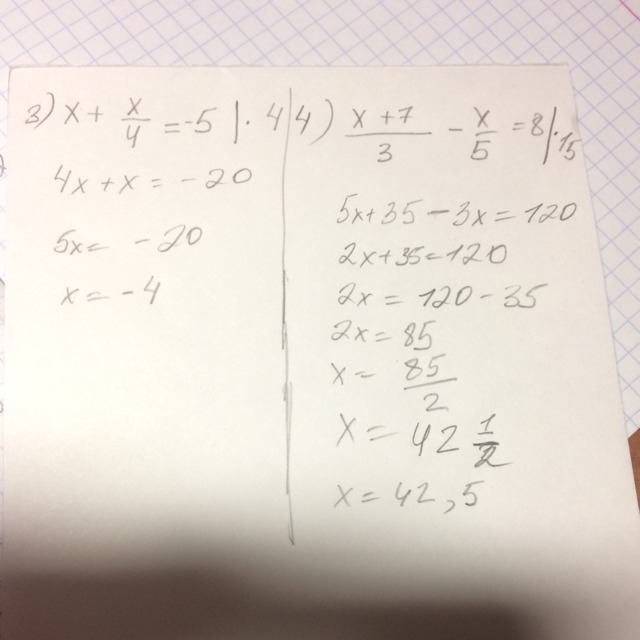 3) x + x/4 = -5 | · 4
4x + x = -20
5x = -20
x = -4
4) x + 7/3 - x/5 = 8 | · 15
5x + 35 - 3x = 120
2x + 35 = 120
2x = 120 - 35
2x = 85
x = 85/2
x = 42 1/2
x = 42,5